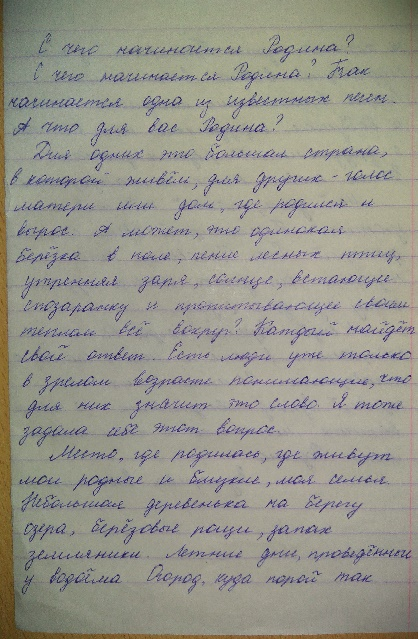 С чего начинается Родина?
С чего начинается Родина? Так
начинается одна из известных песен.
А что для вас Родина?
Для одних это большая страна,
в которой живём, для других - голос
матери или дом, где родился и
вырос. А может, это одинокая
берёзка в поле, пение лесных птиц,
утренняя заря, солнце, встающее
спозаранку и пропитывающее своим
теплом всё вокруг? Каждый найдёт
свой ответ. Есть люди уже только
в зрелом возрасте понимающие, что
для них значит это слово. Я тоже
задала себе этот вопрос.
Место, где родилась, где живут
мои родные и близкие, моя семья.
Небольшая деревенька на берегу
озера, берёзовые рощи, запах
земляники. Летние дни, проведённые
у водоёма. Огород, куда порой так